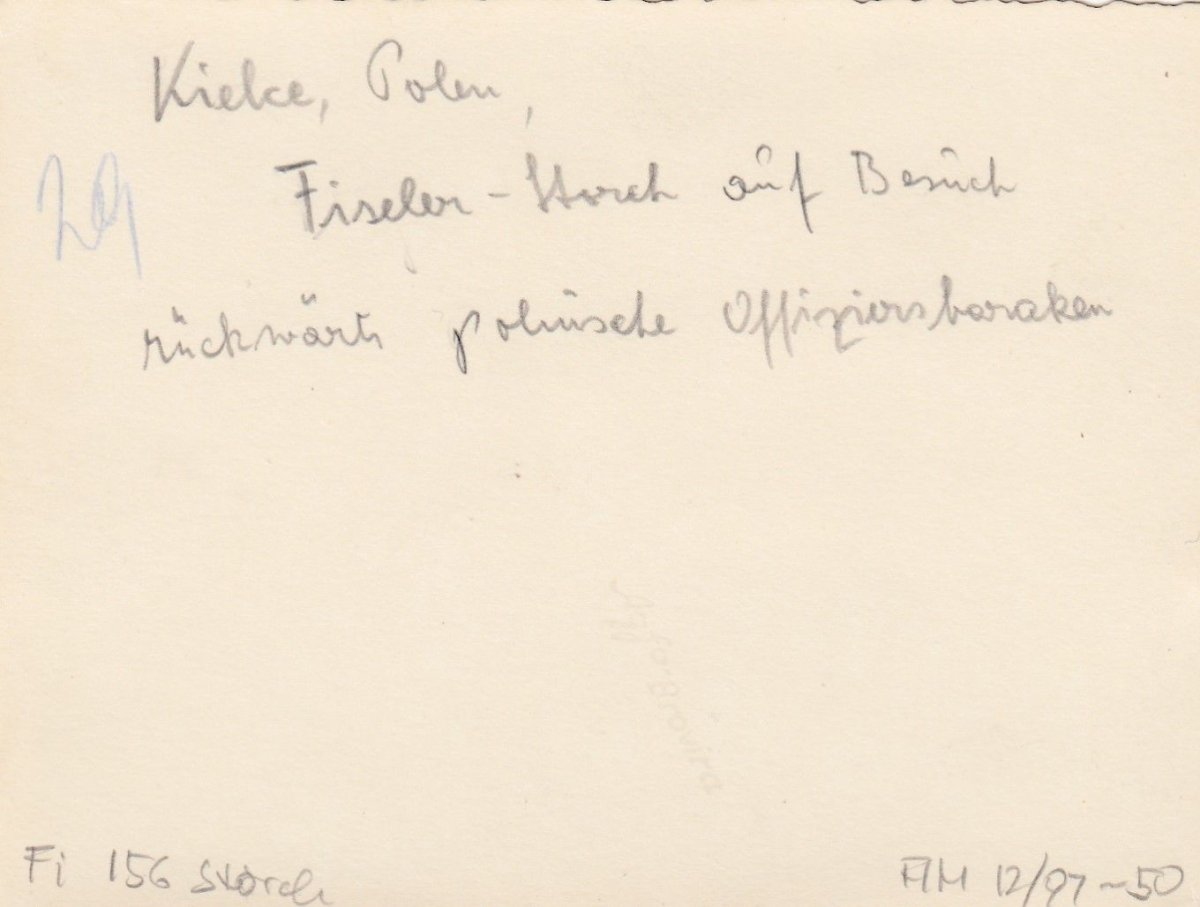 Kielce, Polen,
Fiseler-Storch auf Besuch
rückwärts polnische Offiziersbaraken
Fi 156 Storch
AM 12/97-50